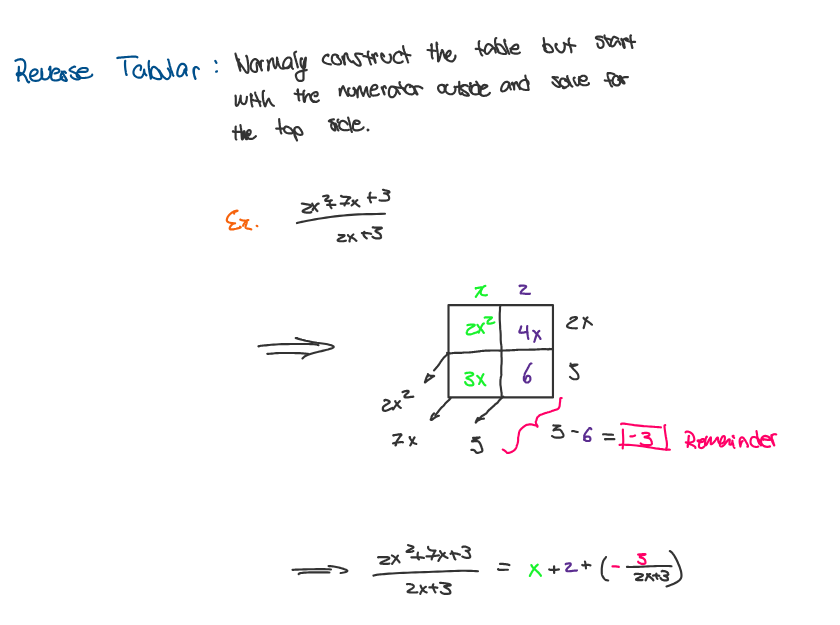 Reverse Tabular: Normaly construct the table but start
with the numerator outside and solve for
the top side.
Ex. 2x²+7x+3
2x+3
x 2
2x² 4x 2x
3x 6 3
2x²
7x 3 3-6 = -3 Remainder
⇒ 2x²+7x+3 / 2x+3 = x+2+(-3/2x+3)